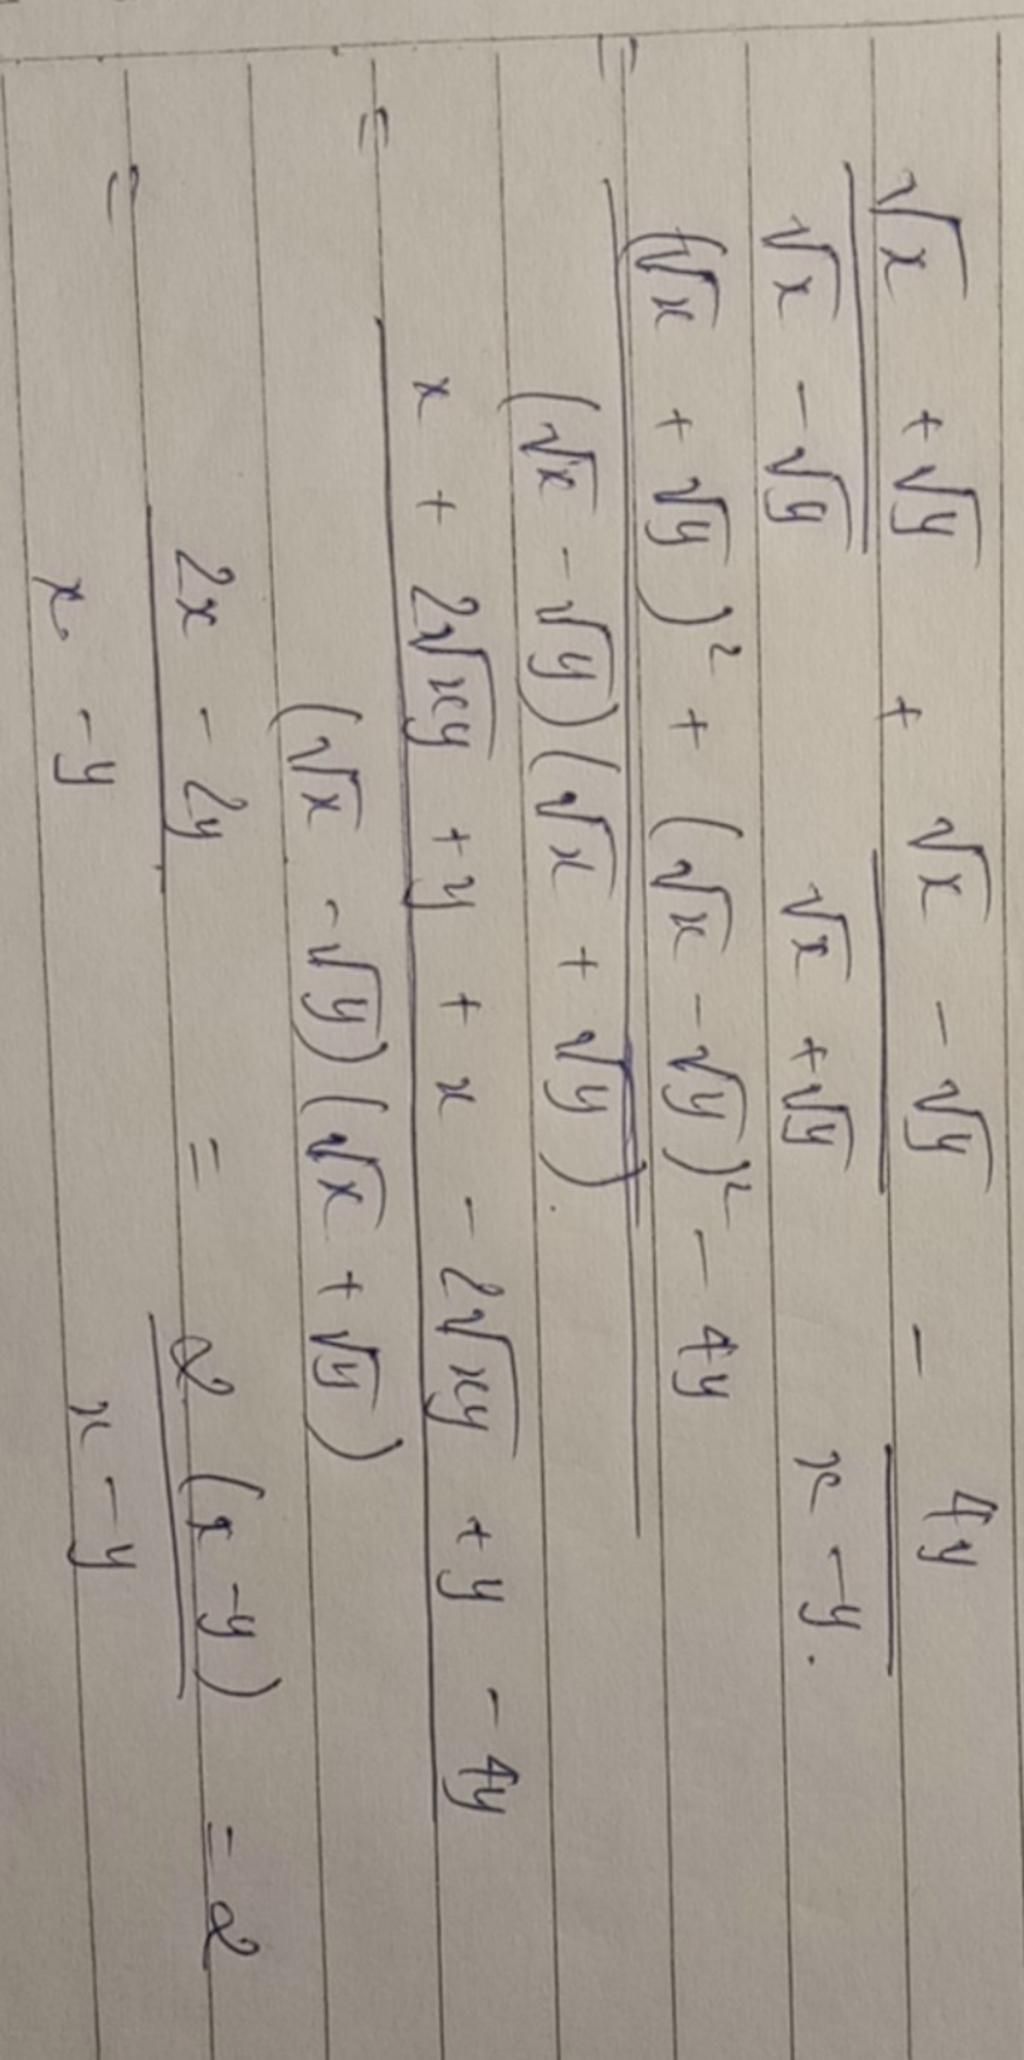 (√x + √y)/(√x - √y) + (√x - √y)/(√x + √y) - 4y/(x - y).
= ((√x + √y)² + (√x - √y)² - 4y)/((√x - √y)(√x + √y)).
= (x + 2√xy + y + x - 2√xy + y - 4y)/((√x - √y)(√x + √y))
= (2x - 2y)/(x - y) = 2(x - y)/(x - y) = 2